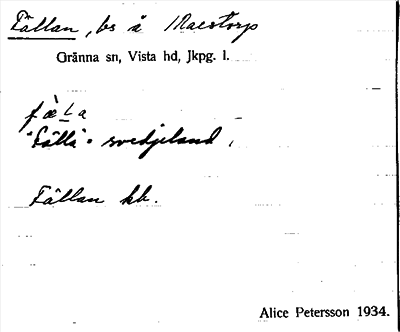 Fällan, bs å Maestorp
Gränna sn, Vista hd, Jkpg. l.
fæ̀La
"Fälla" = svedjeland,
Fällan kb.
Alice Petersson 1934.